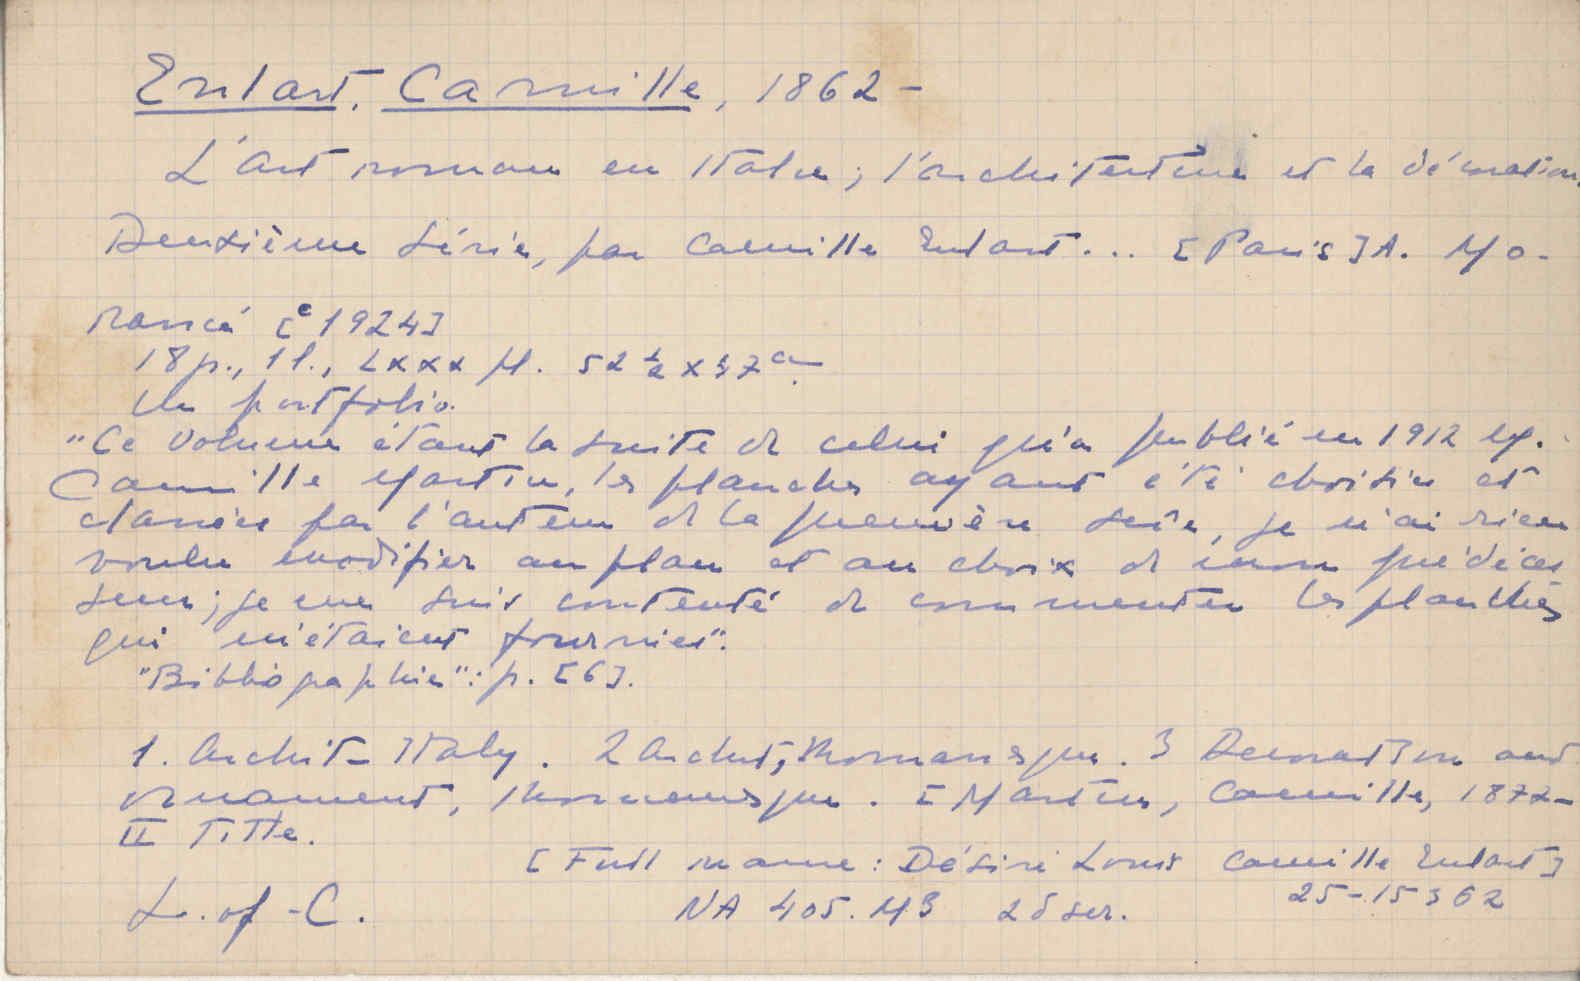 Enlart, Camille, 1862-
L'art roman en Italie; l'architecture et la décoration.
Deuxième série, par Camille Enlart... [Paris] A. Mo-
rancé [c1924]
18 p., 1 l., LXXX pl. 52 1/2 x 37 cm.
In portfolio.
"Ce volume étant la suite de celui qu'a publié en 1912 M.
Camille Martin, les planches ayant été choisies et
classées par l'auteur de la première série, je n'ai rien
voulu modifier au plan et au choix de mon prédéces
seur; je me suis contenté de commenter les planches
qui m'étaient fournies".
"Bibliographie": p. [6].
1. Archit- Italy. 2 Archit, Romanesque. 3 Decoration and
ornament, Romanesque. I Martin, Camille, 1877-
II Title.
[Full name: Désiré Louis Camille Enlart]
L. of -C. NA 405. M3 2d ser. 25-15362